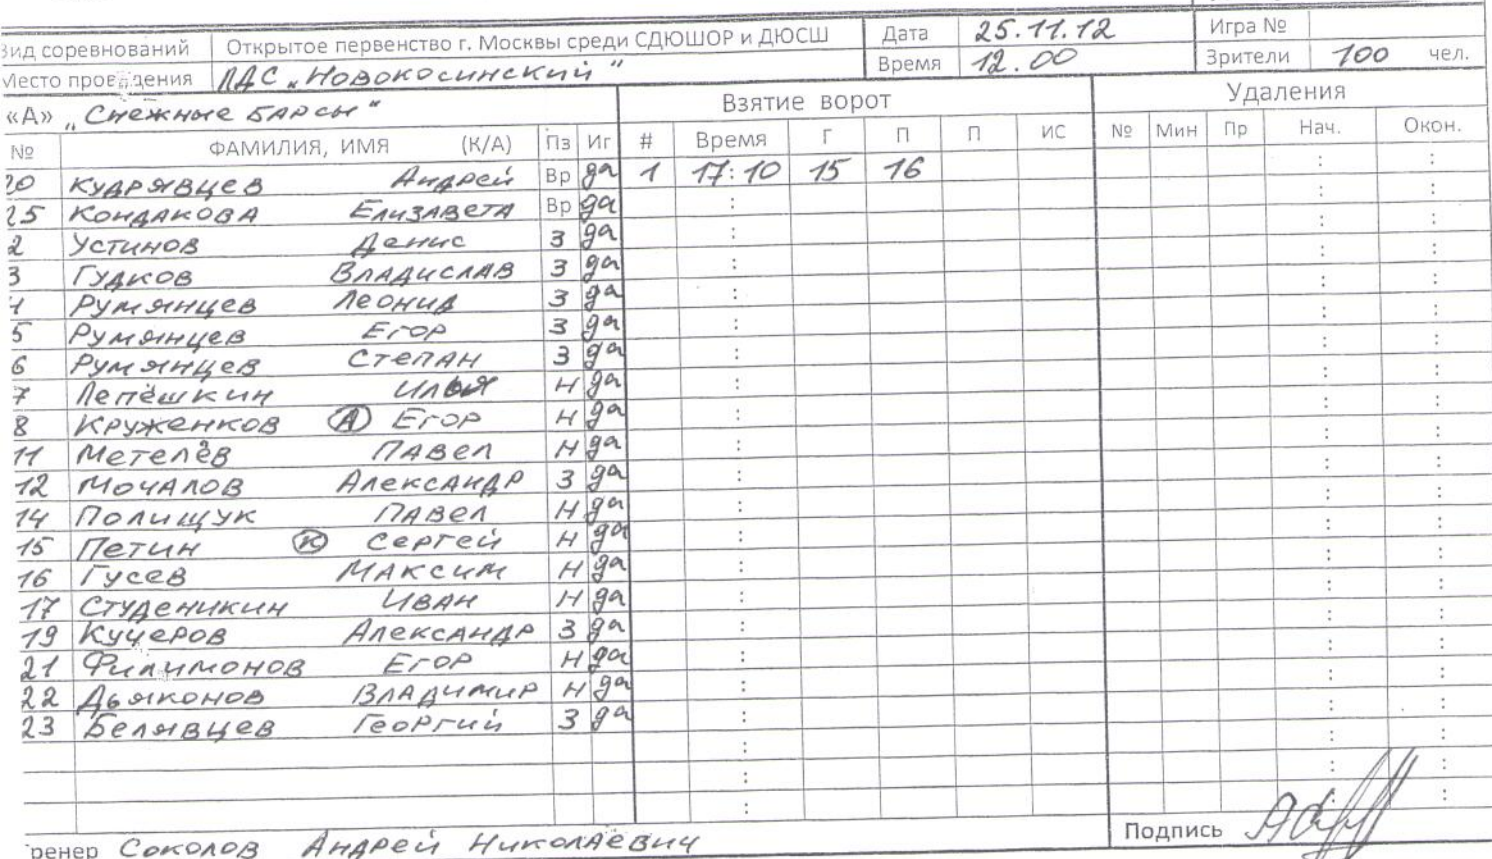 Вид соревнований Открытое первенство г. Москвы среди СДЮШОР и ДЮСШ Дата 25.11.12 Игра №
Место проведения ЛДС „Новокосинский" Время 12.00 Зрители 100 чел.
«А» „Снежные Барсы" Взятие ворот Удаления
№ ФАМИЛИЯ, ИМЯ (К/А) Пз Иг # Время Г П П ИС № Мин Пр Нач. Окон.
20 Кудрявцев Андрей Вр да 1 17:10 15 16 : :
25 Кондакова Елизавета Вр да : : :
2 Устинов Денис З да : : :
3 Гудков Владислав З да : : :
4 Румянцев Леонид З да : : :
5 Румянцев Егор З да : : :
6 Румянцев Степан З да : : :
7 Лепёшкин Илья Н да : : :
8 Круженков А Егор Н да : : :
11 Метелёв Павел Н да : : :
12 Мочалов Александр З да : : :
14 Полищук Павел Н да : : :
15 Петин К Сергей Н да : : :
16 Гусев Максим Н да : : :
17 Студеникин Иван Н да : : :
19 Кучеров Александр З да : : :
21 Филимонов Егор Н да : : :
22 Дьяконов Владимир Н да : : :
23 Белявцев Георгий З да : : :
: : :
: : :
: : :
тренер Соколов Андрей Николаевич Подпись